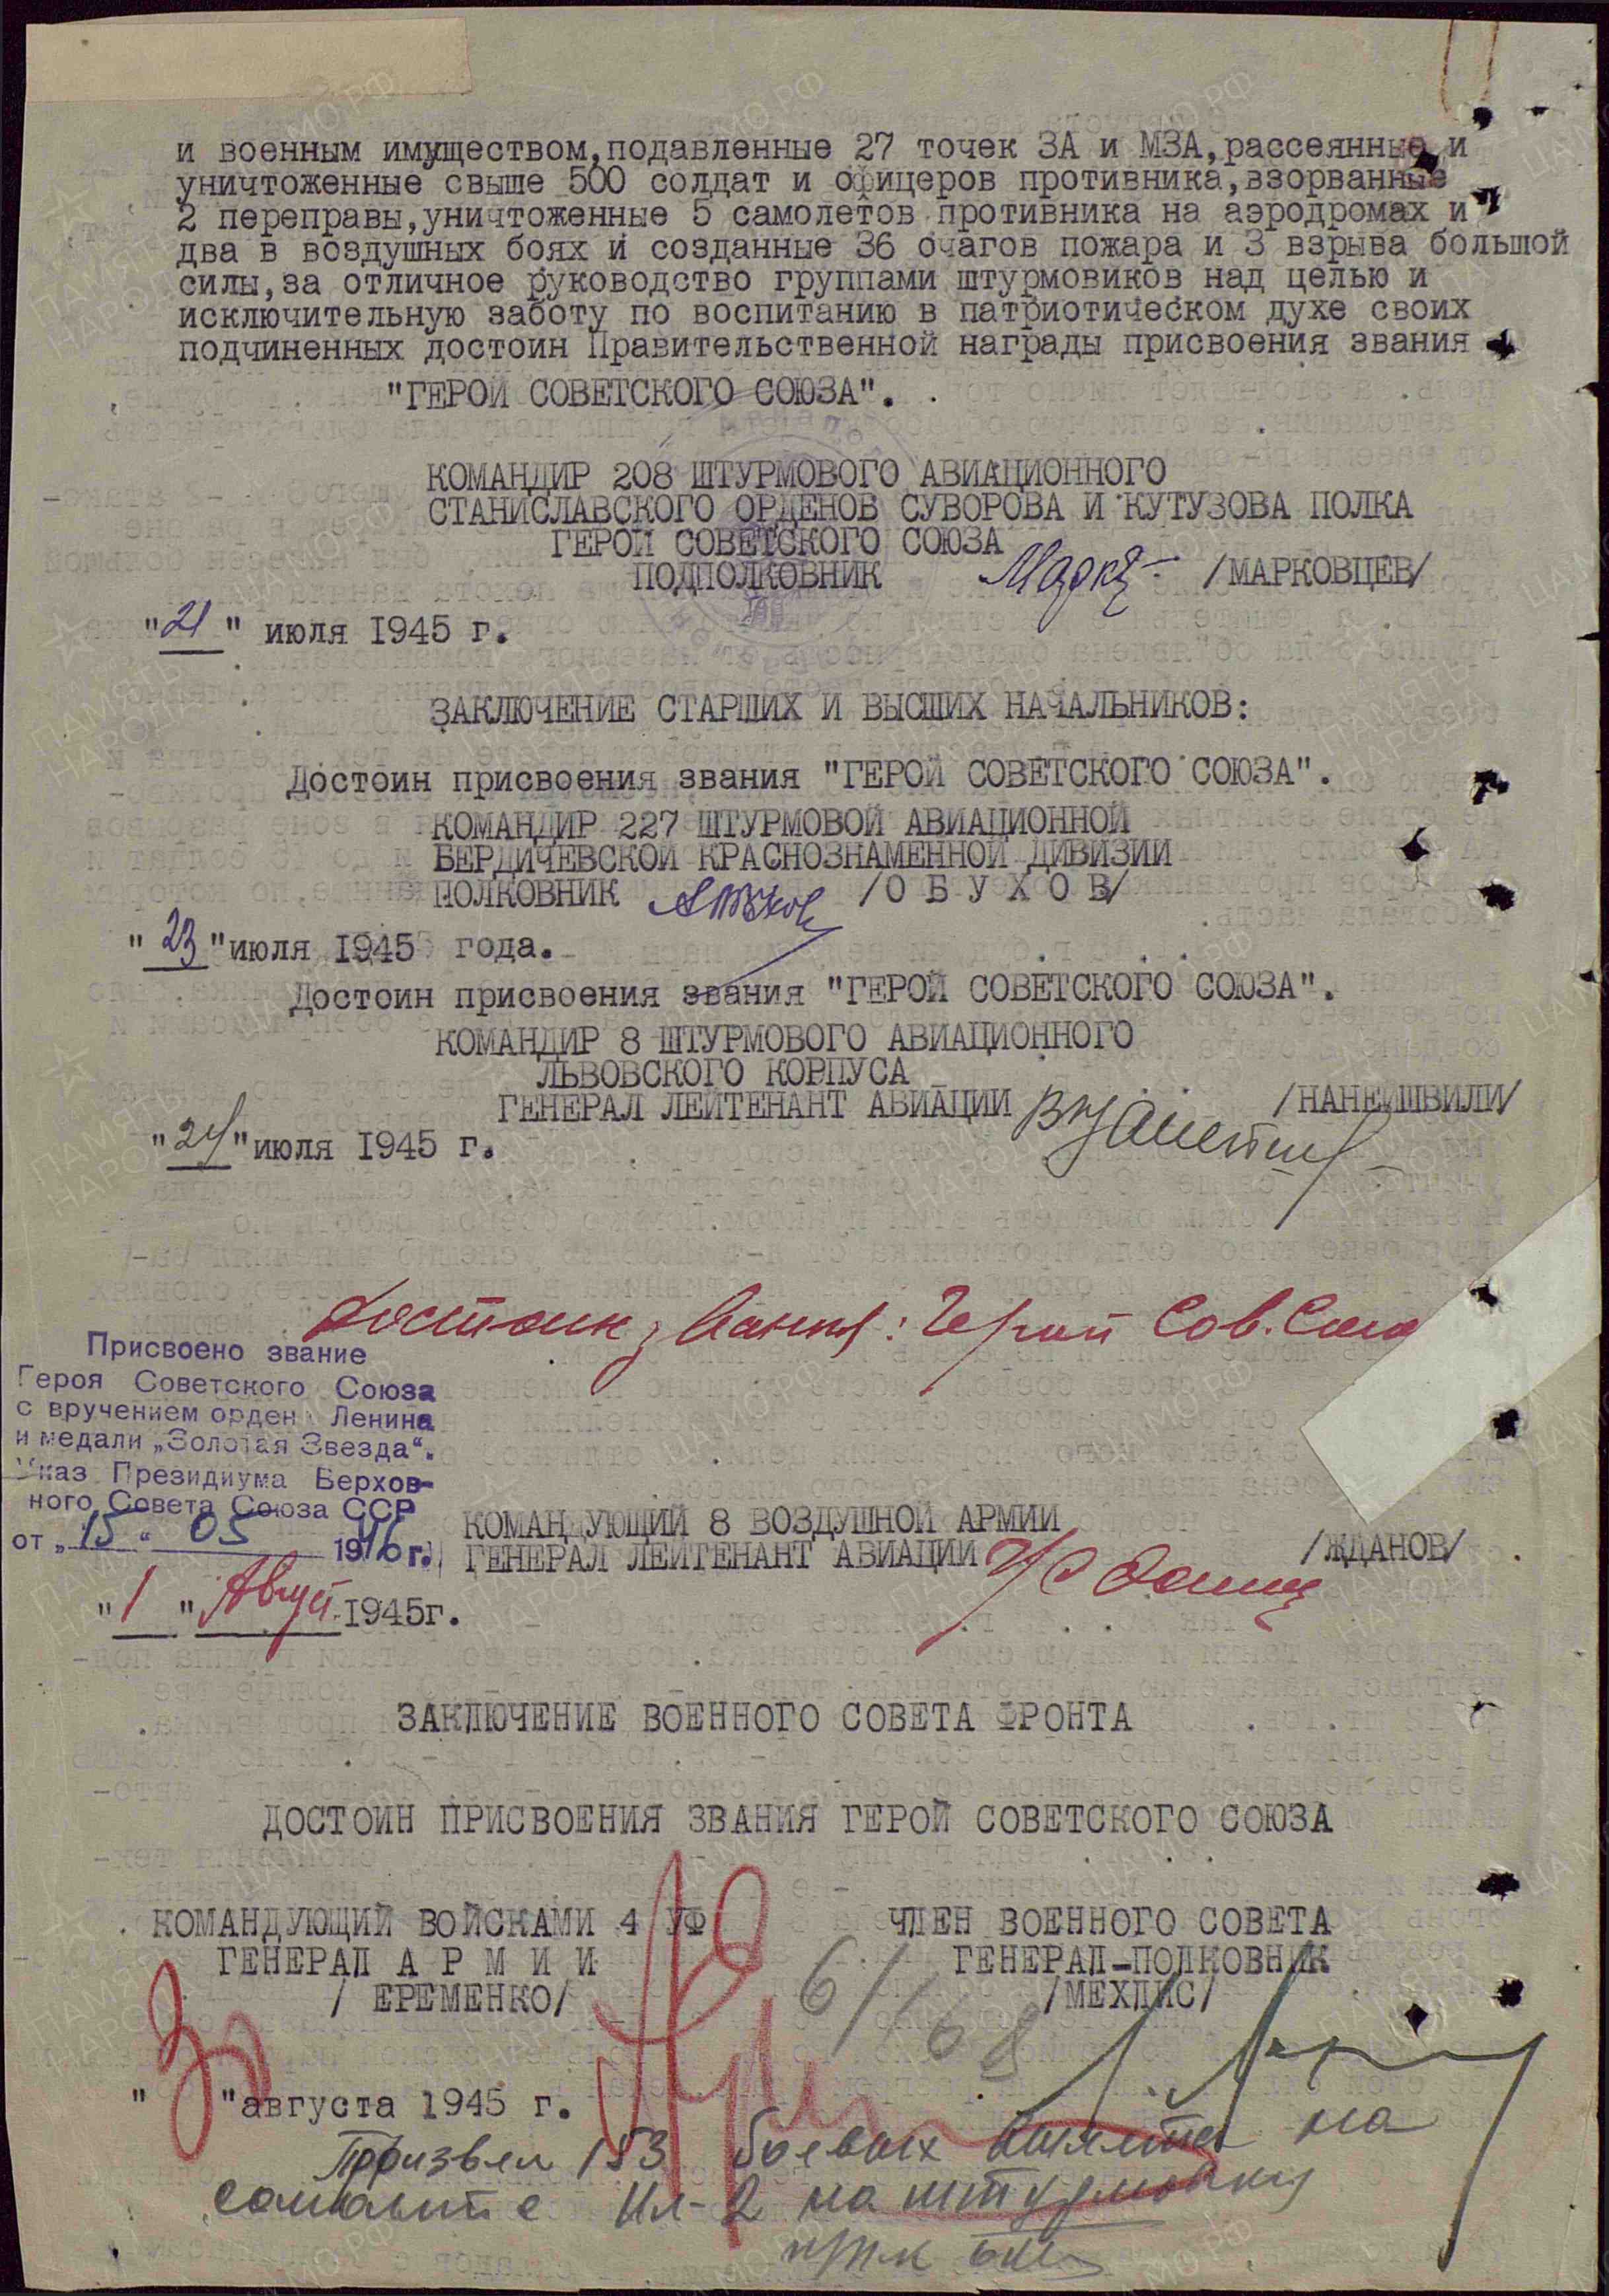 и военным имуществом,подавленные 27 точек ЗА и МЗА,рассеянные и
уничтоженные свыше 500 солдат и офицеров противника,взорванные
2 переправы,уничтоженные 5 самолетов противника на аэродромах и
два в воздушных боях и созданные 36 очагов пожара и 3 взрыва большой
силы,за отличное руководство группами штурмовиков над целью и
исключительную заботу по воспитанию в патриотическом духе своих
подчиненных достоин Правительственной награды присвоения звания
"ГЕРОЙ СОВЕТСКОГО СОЮЗА".
КОМАНДИР 208 ШТУРМОВОГО АВИАЦИОННОГО
СТАНИСЛАВСКОГО ОРДЕНОВ СУВОРОВА И КУТУЗОВА ПОЛКА
ГЕРОЙ СОВЕТСКОГО СОЮЗА
ПОДПОЛКОВНИК /МАРКОВЦЕВ/
"21" июля 1945 г.
ЗАКЛЮЧЕНИЕ СТАРШИХ И ВЫСШИХ НАЧАЛЬНИКОВ:
Достоин присвоения звания "ГЕРОЙ СОВЕТСКОГО СОЮЗА".
КОМАНДИР 227 ШТУРМОВОЙ АВИАЦИОННОЙ
БЕРДИЧЕВСКОЙ КРАСНОЗНАМЕННОЙ ДИВИЗИИ
ПОЛКОВНИК /О Б У Х О В/
"23"июля 1945 года.
Достоин присвоения звания "ГЕРОЙ СОВЕТСКОГО СОЮЗА".
КОМАНДИР 8 ШТУРМОВОГО АВИАЦИОННОГО
ЛЬВОВСКОГО КОРПУСА
ГЕНЕРАЛ ЛЕЙТЕНАНТ АВИАЦИИ /НАНЕЙШВИЛИ/
"24"июля 1945 г.
Достоин звания: Герой Сов. Союз
Присвоено звание
Героя Советского Союза
с вручением орден Ленина
и медали „Золотая Звезда".
Указ Президиума Верхов-
ного Совета Союза ССР
от „15" 05 1946 г.
КОМАНДУЮЩИЙ 8 ВОЗДУШНОЙ АРМИИ
ГЕНЕРАЛ ЛЕЙТЕНАНТ АВИАЦИИ /ЖДАНОВ/
"1" Август 1945г.
ЗАКЛЮЧЕНИЕ ВОЕННОГО СОВЕТА ФРОНТА
ДОСТОИН ПРИСВОЕНИЯ ЗВАНИЯ ГЕРОЙ СОВЕТСКОГО СОЮЗА
КОМАНДУЮЩИЙ ВОЙСКАМИ 4 УФ
ГЕНЕРАЛ А Р М И И
/ ЕРЕМЕНКО/
ЧЛЕН ВОЕННОГО СОВЕТА
ГЕНЕРАЛ-ПОЛКОВНИК
/МЕХЛИС/
" "августа 1945 г.
Произвел 153 боевых вылета на
самолете Ил-2 на штурмовку